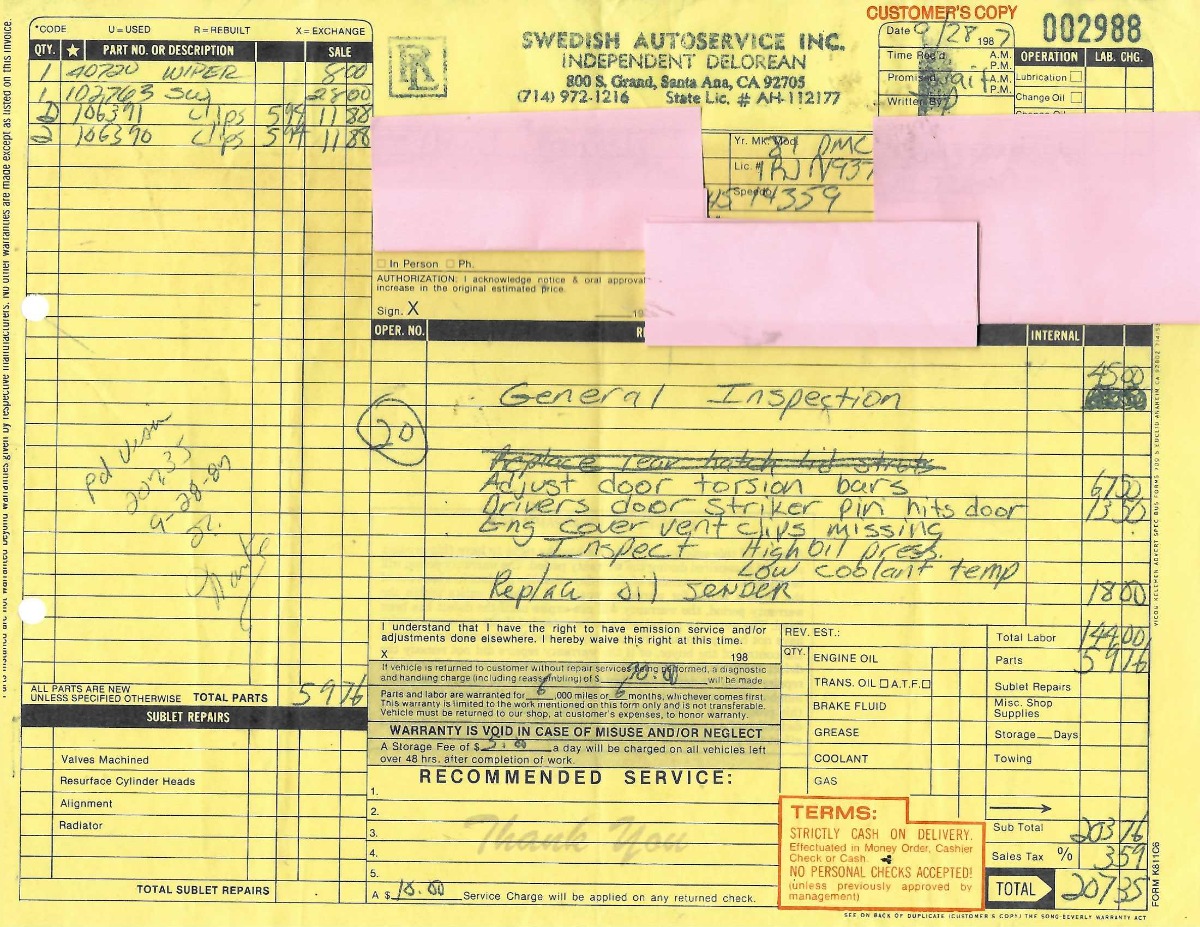 CUSTOMER'S COPY
002988
*CODE U=USED R=REBUILT X=EXCHANGE
QTY. ★ PART NO. OR DESCRIPTION SALE
1 40720 WIPER 8 00
1 102763 SW 28 00
2 106391 Clips 5 94 11 88
2 106390 Clips 5 94 11 88
SWEDISH AUTOSERVICE INC.
INDEPENDENT DELOREAN
800 S. Grand, Santa Ana, CA 92705
(714) 972-1216 State Lic. # AH-112177
Date 9/28 1987
Time Rec'd A.M.
P.M.
Promised A.M.
P.M.
Written By
OPERATION LAB. CHG.
Lubrication
Change Oil
Yr. Mk. Mod. 81 DMC
Lic. # 1RJN937
Speedo 14359
In Person Ph.
AUTHORIZATION: I acknowledge notice & oral approval
increase in the original estimated price.
Sign. X 19
OPER. NO. INTERNAL
45 00
General Inspection
20
Replace rear hatch lid struts
Adjust door torsion bars 67 50
Drivers door striker pin hits door 13 50
Eng cover vent clips missing
Inspect High oil press.
Low coolant temp
Replace oil sender 18 00
pd visa
207.35
9-28-87
Thanks
I understand that I have the right to have emission service and/or
adjustments done elsewhere. I hereby waive this right at this time.
X 198
If vehicle is returned to customer without repair services being performed, a diagnostic
and handling charge (including reassembling) of $ will be made.
Parts and labor are warranted for 6 ,000 miles or 6 months, whichever comes first.
This warranty is limited to the work mentioned on this form only and is not transferable.
Vehicle must be returned to our shop, at customer's expenses, to honor warranty.
WARRANTY IS VOID IN CASE OF MISUSE AND/OR NEGLECT
A Storage Fee of $ 5.00 a day will be charged on all vehicles left
over 48 hrs. after completion of work.
RECOMMENDED SERVICE:
1.
2.
3.
4.
5.
Thank You
A $ 10.00 Service Charge will be applied on any returned check.
REV. EST.:
QTY.
ENGINE OIL
TRANS. OIL A.T.F.
BRAKE FLUID
GREASE
COOLANT
GAS
Total Labor 144 00
Parts 59 76
Sublet Repairs
Misc. Shop
Supplies
Storage Days
Towing
Sub Total 203 76
Sales Tax % 3 59
TOTAL 207 35
TERMS:
STRICTLY CASH ON DELIVERY.
Effectuated in Money Order, Cashier
Check or Cash.
NO PERSONAL CHECKS ACCEPTED!
(unless previously approved by
management)
ALL PARTS ARE NEW
UNLESS SPECIFIED OTHERWISE TOTAL PARTS 59 76
SUBLET REPAIRS
Valves Machined
Resurface Cylinder Heads
Alignment
Radiator
TOTAL SUBLET REPAIRS
FORM K81106
SEE ON BACK OF DUPLICATE (CUSTOMER'S COPY) THE SONG-BEVERLY WARRANTY ACT